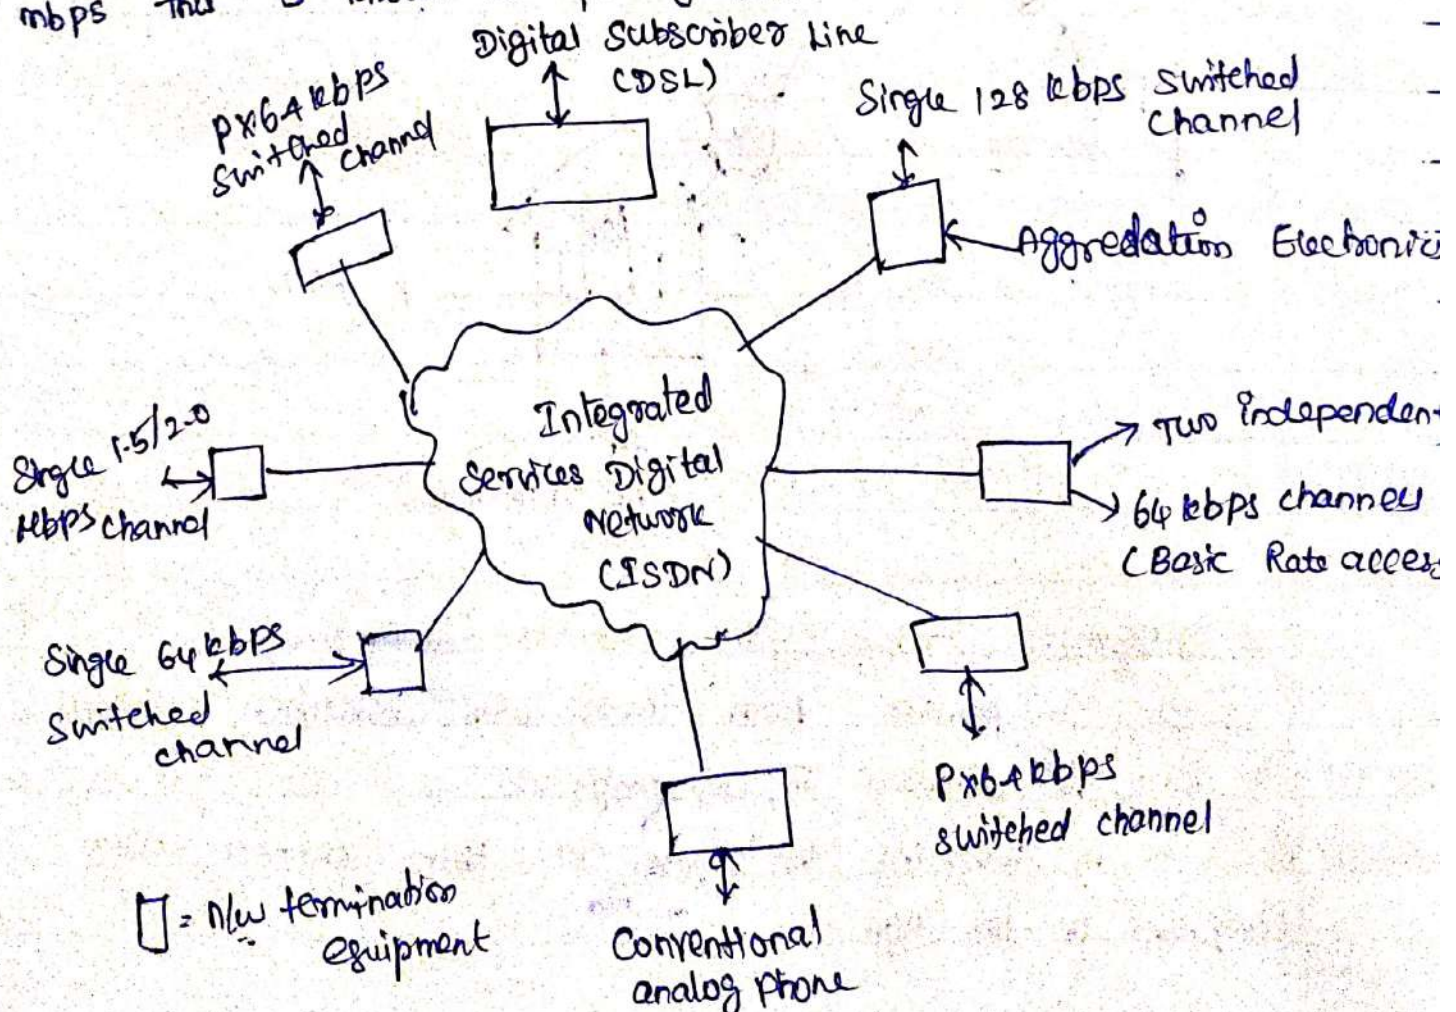 mbps This
Digital Subscriber Line
(DSL)
px64 kbps
Switched
channel
Single 128 kbps Switched
channel
Aggredation Electronics
Integrated
Services Digital
Network
(ISDN)
Single 1.5/2.0
Mbps channel
Two independent
64 kbps channels
(Basic Rate access
Single 64 kbps
Switched
channel
Px64kbps
switched channel
= n/w termination
equipment
Conventional
analog phone